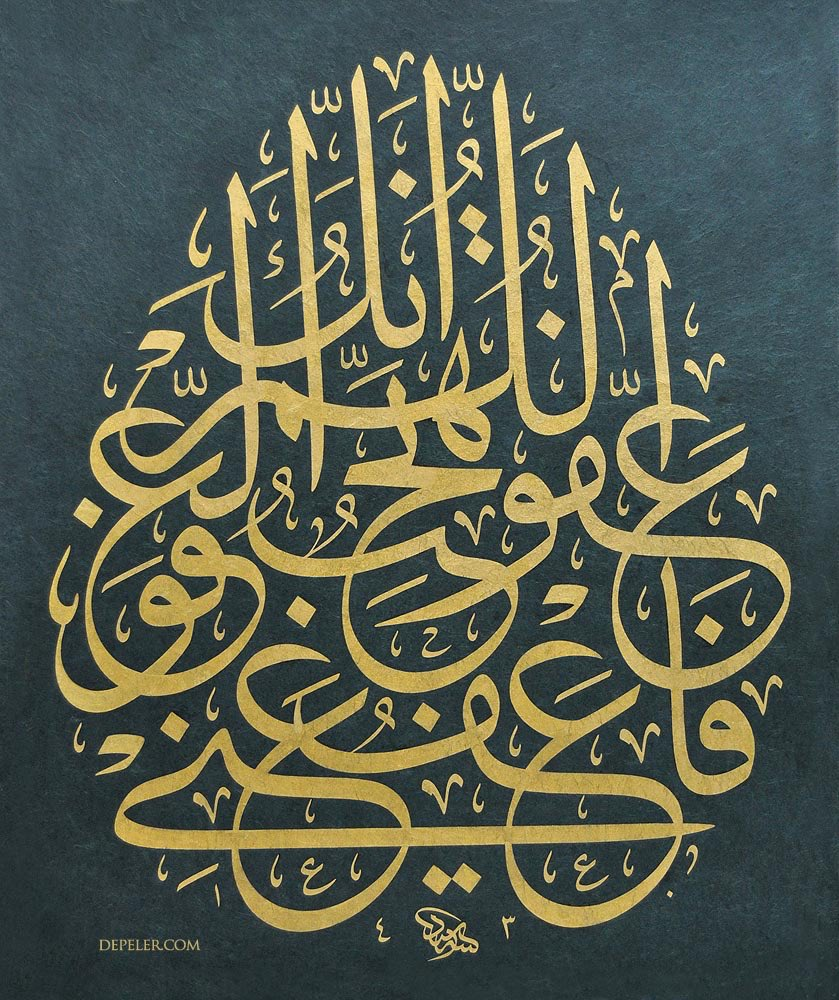 اللّهُمَّ انَّكَ عَفُوٌّ تُحِبُّ الْعَفْوَ فَاعْفُ عَنِّي
٤ ٣
DEPELER.COM